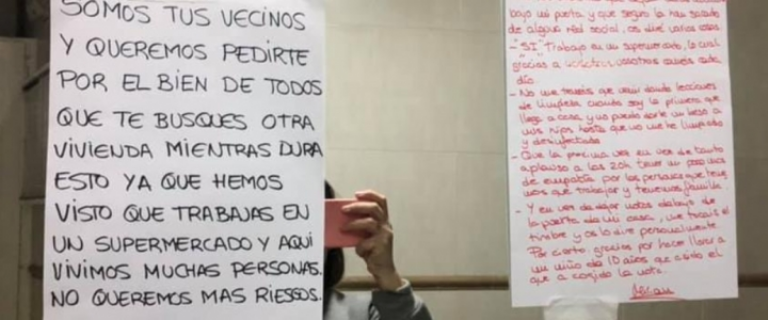 SOMOS TUS VECINOS
Y QUEREMOS PEDIRTE
POR EL BIEN DE TODOS
QUE TE BUSQUES OTRA
VIVIENDA MIENTRAS DURA
ESTO YA QUE HEMOS
VISTO QUE TRABAJAS EN
UN SUPERMERCADO Y AQUI
VIVIMOS MUCHAS PERSONAS.
NO QUEREMOS MAS RIESGOS.
bajo mi puerta, y que seguro la han sacado
de alguna red social, os diré varias cosas
- "SI" Trabajo en un supermercado, lo cual
gracias a nosotros vosotros coméis cada
día.
- No me tenéis que venir dando lecciones
de limpieza cuando soy la primera que
llega a casa, y no puedo darle un beso a
mis hijos hasta que no me he limpiado
y desinfectado
- Que la próxima vez en vez de tanto
aplauso a las 20h tener un poco más
de empatía por las personas que tene
mos que trabajar y tenemos familia
- Y en vez de dejar notas debajo de
la puerta de mi casa, me tocáis el
timbre y os lo diré personalmente
Por cierto, gracias por hacer llorar a
un niño de 10 años que a sido el
que a cogido la nota.